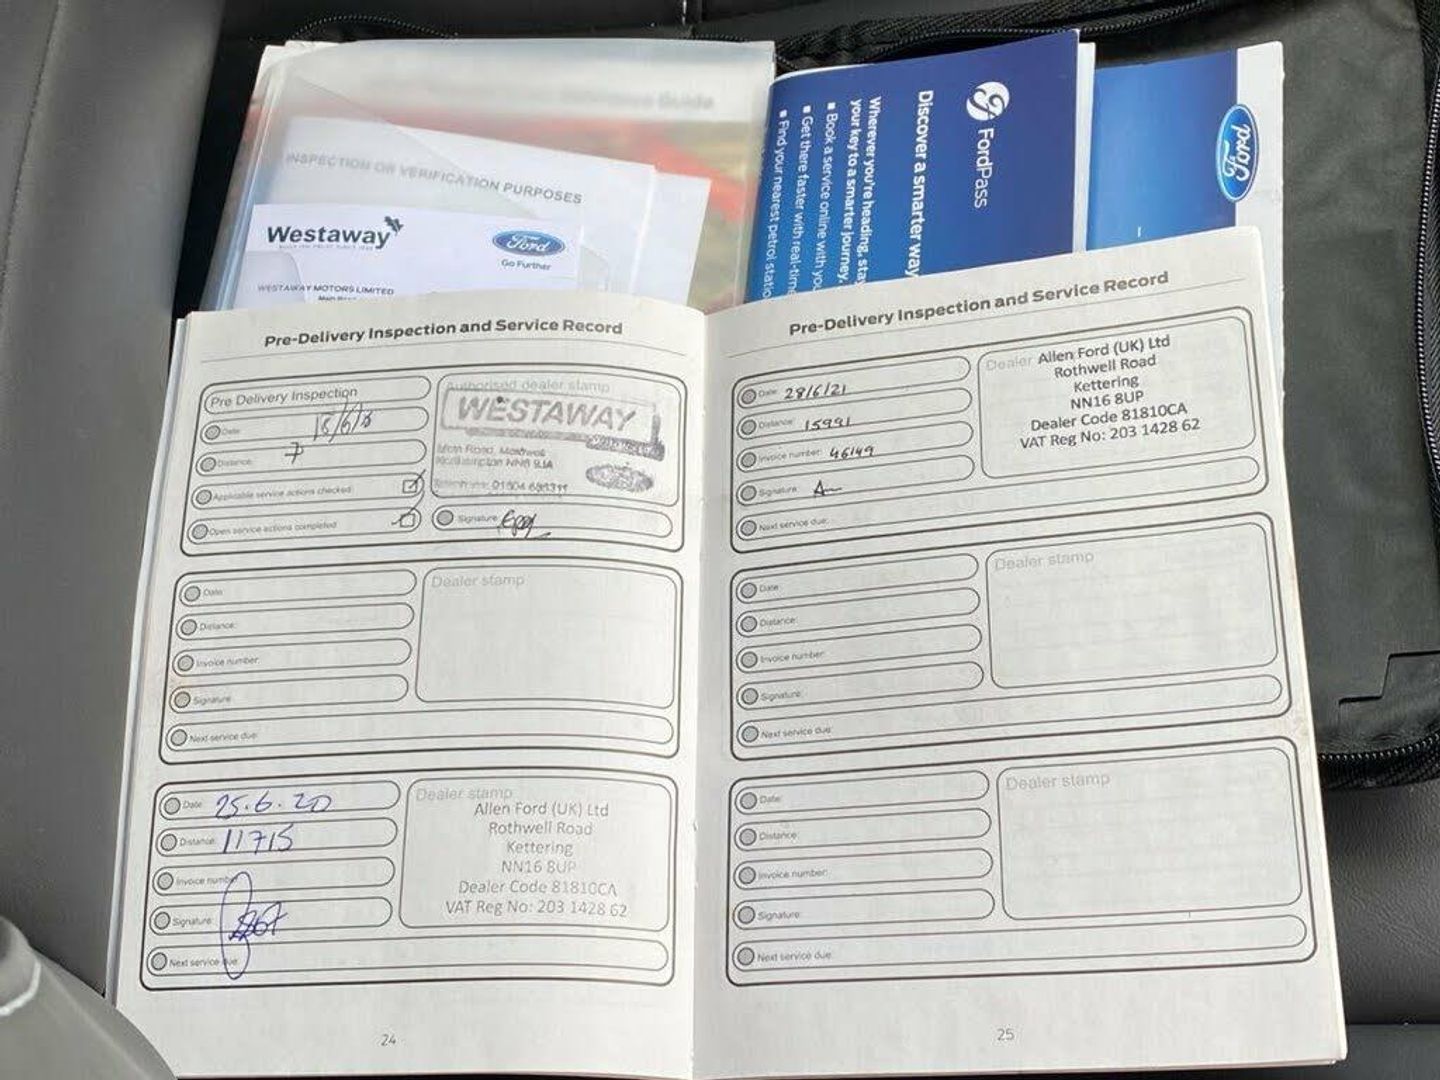 Reference Guide
INSPECTION OR VERIFICATION PURPOSES
Westaway
Ford
Go Further
WESTAWAY MOTORS LIMITED
Main Road
FordPass
Discover a smarter way
Wherever you're heading, stay
your key to a smarter journey.
Book a service online with you
Get there faster with real-time
Find your nearest petrol statio
Ford
Pre-Delivery Inspection and Service Record
Pre Delivery Inspection
Date:
Distance: 7
Applicable service actions checked:
Open service actions completed
Authorised dealer stamp
WESTAWAY
Main Road, Moulton
Northampton NN6 9JA
Signature:
Date:
Distance:
Invoice number:
Signature:
Next service due:
Dealer stamp
Date: 25.6.20
Distance: 11715
Invoice number
Signature:
Next service due:
Dealer stamp
Allen Ford (UK) Ltd
Rothwell Road
Kettering
NN16 8UP
Dealer Code 81810CA
VAT Reg No: 203 1428 62
24
Pre-Delivery Inspection and Service Record
Date: 28/6/21
Distance: 15991
Invoice number: 46149
Signature:
Next service due:
Dealer Allen Ford (UK) Ltd
Rothwell Road
Kettering
NN16 8UP
Dealer Code 81810CA
VAT Reg No: 203 1428 62
Date:
Distance:
Invoice number:
Signature:
Next service due:
Dealer stamp
Date:
Distance:
Invoice number:
Signature:
Next service due:
Dealer stamp
25